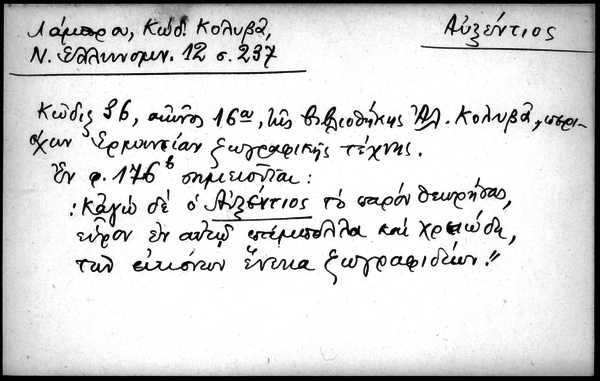 Λάμπρου, Κώδ. Κολυβᾶ,
Ν. Ἑλληνομν. 12 σ. 237
Αὐξέντιος
Κῶδιξ 36, αἰῶνος 16ου, τῆς βιβλιοθήκης Ἀλ. Κολυβᾶ, περι-
έχων Ἑρμηνείαν ζωγραφικῆς τέχνης.
Ἐν φ. 176β σημειοῦται:
"Κἀγὼ δὲ ὁ Αὐξέντιος τὸ παρὸν θεωρήσας,
εὗρον ἐν αὐτῷ πάμπολλα καὶ χρειώδη,
τῶν εἰκόνων ἕνεκα ζωγραφιδίων."